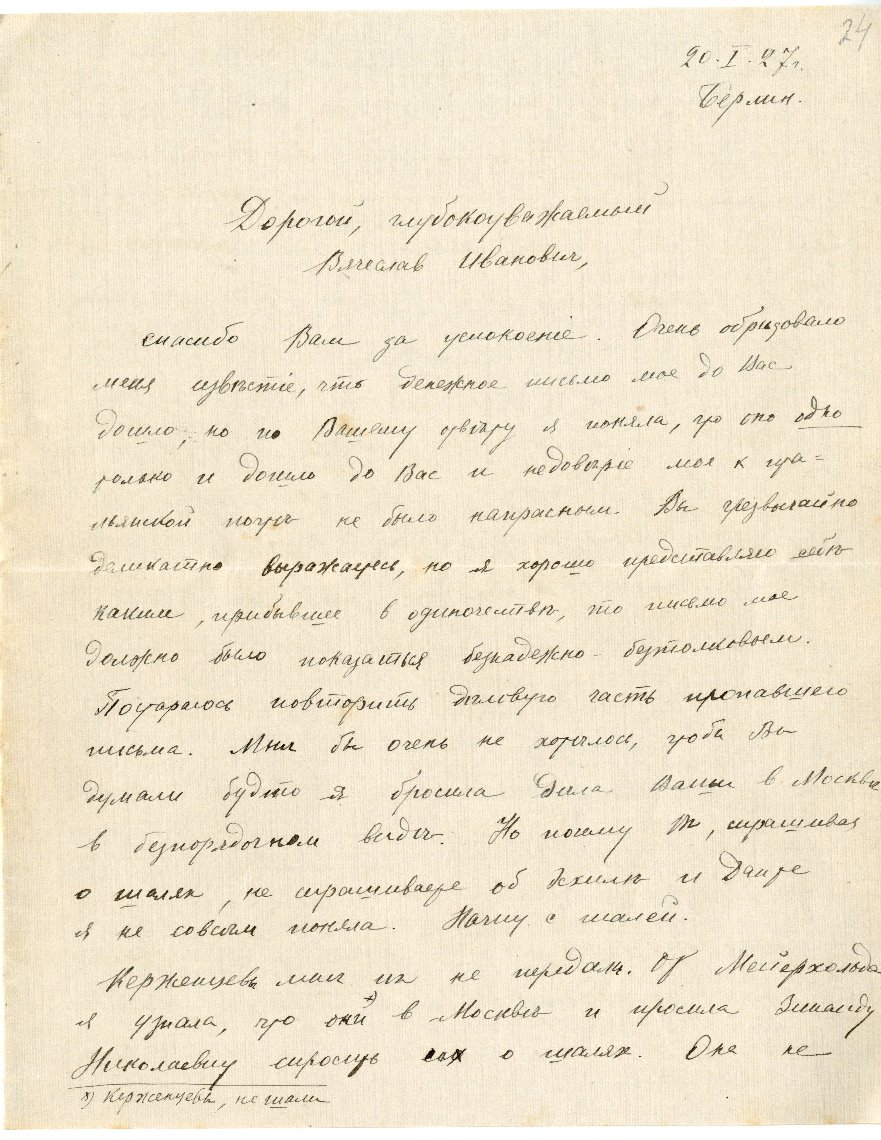 24
20. I. 27 г.
Берлин.
Дорогой, глубокоуважаемый
Вячеслав Иванович,
спасибо Вам за успокоенiе. Очень обрадовало
меня извѣстiе, что денежное письмо мое до Вас
дошло, но по Вашему отвѣту я поняла, что оно одно
только и дошло до Вас и недовѣрiе мое к ита=
льянской почтѣ не было напрасным. Вы чрезвычайно
деликатно выражаетесь, но я хорошо представляю себѣ
каким, прибывшее в одиночествѣ, то письмо мое
должно было показаться безнадежно-безтолковым.
Постараюсь повторить дѣловую часть пропавшего
письма. Мнѣ бы очень не хотѣлось, чтобы Вы
думали будто я бросила дѣла Ваши в Москвѣ
в безпорядочном видѣ. Но почему Вы, спрашивая
о шалях, не спрашиваете об Эсхилѣ и Данте
я не совсѣм поняла. Начну с шалей.
Керженцевъ мнѣ их не передал. От Мейерхольда
я узнала, что они x) в Москвѣ и просила Зинаиду
Николаевну спросить о шалях. Она не
x) Керженцевъ, не шали